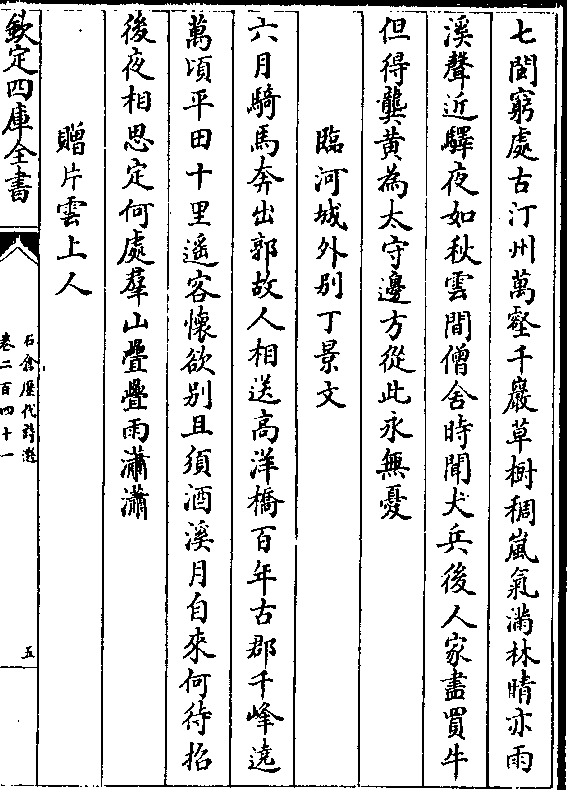 七閩窮處古汀州萬壑千巖草樹稠嵐氣滿林晴亦雨
溪聲近驛夜如秋雲間僧舍時聞犬兵後人家盡買牛
但得龔黃為太守邊方從此永無憂
臨河城外別丁景文
六月騎馬奔出郭故人相送高洋橋百年古郡千峰遶
萬頃平田十里遥客懷欲别且須酒溪月自來何待招
後夜相思定何處羣山疊疊雨瀟瀟
贈片雲上人
欽定四庫全書
石倉歷代詩選
卷二百四十一
五